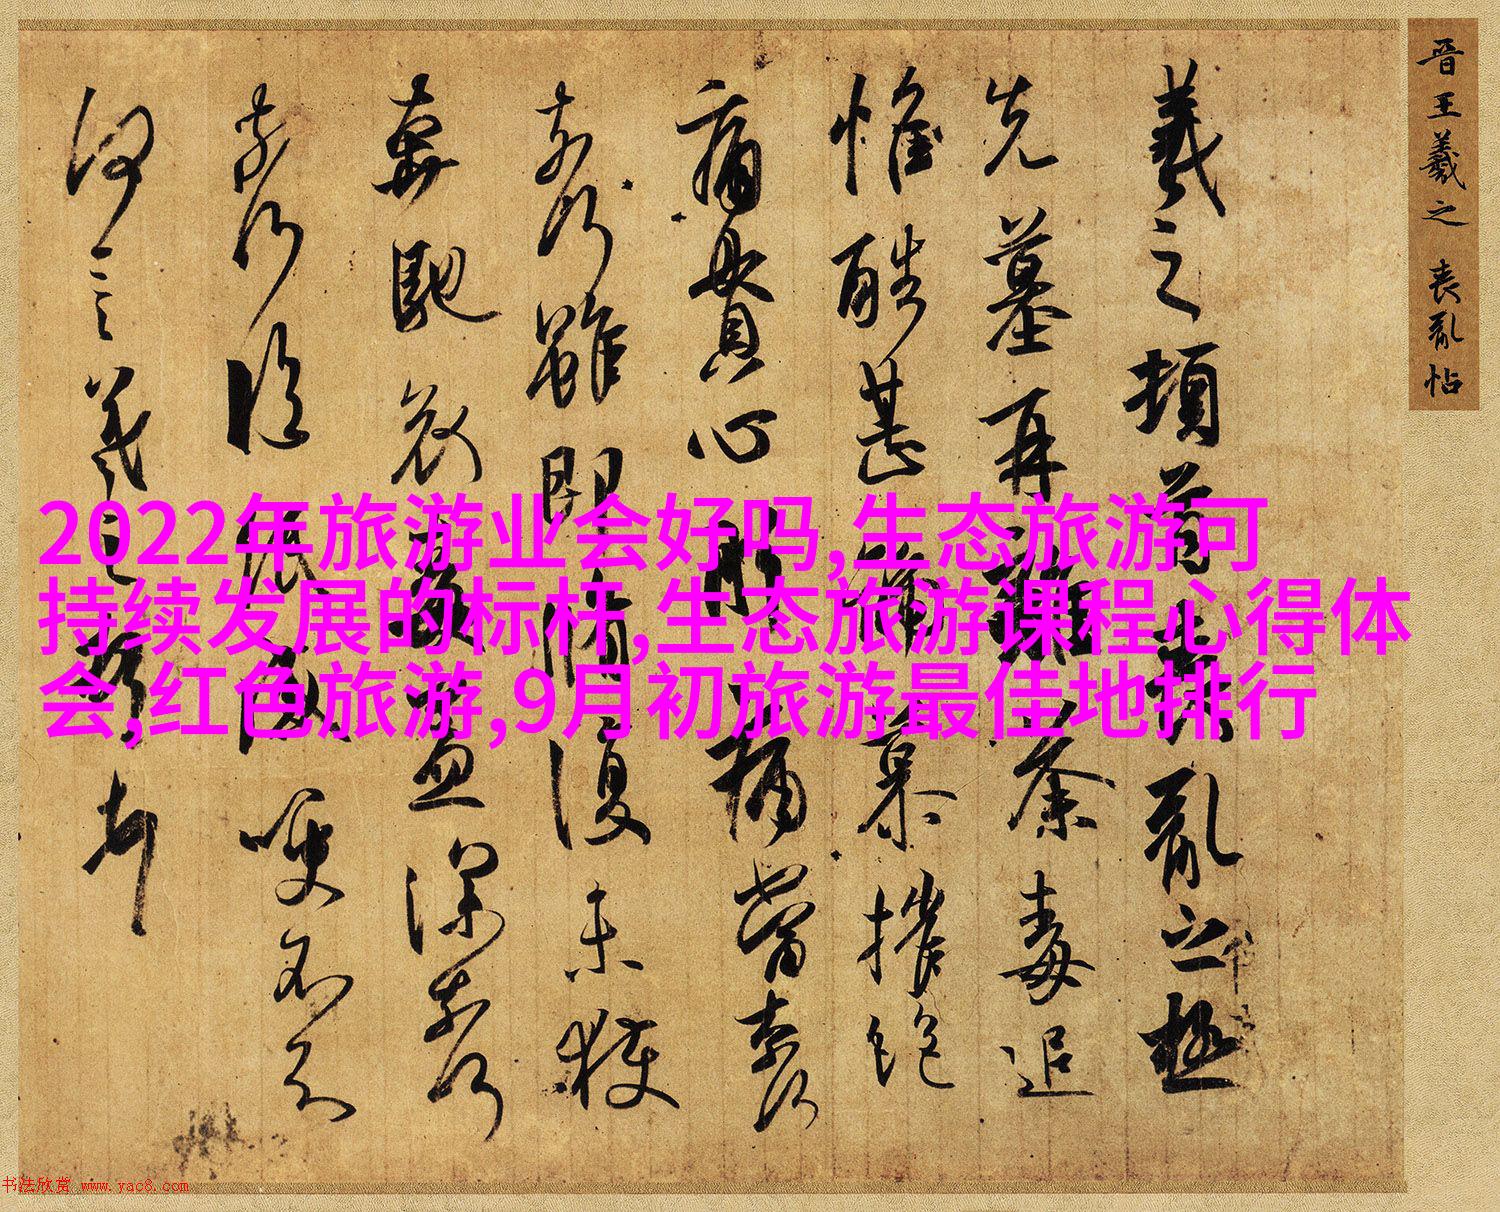 晉王羲之 喪亂帖
羲之頓首喪亂之極
先墓再離荼毒追
惟酷甚號慕摧絶
痛貫心肝痛當奈何
奈何雖即脩復未獲
奔馳哀毒益深奈何
奈何臨紙感哽不知
何言羲之頓首頓首
2022年旅游业会好吗,生态旅游可
持续发展的标杆,生态旅游课程心得体
会,红色旅游,9月初旅游最佳地排行
书法欣赏 www.yac8.com